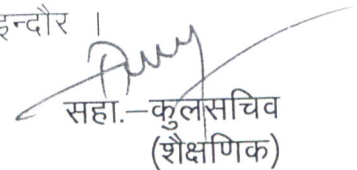 इन्दौर ।
सहा.–कुलसचिव
(शैक्षणिक)